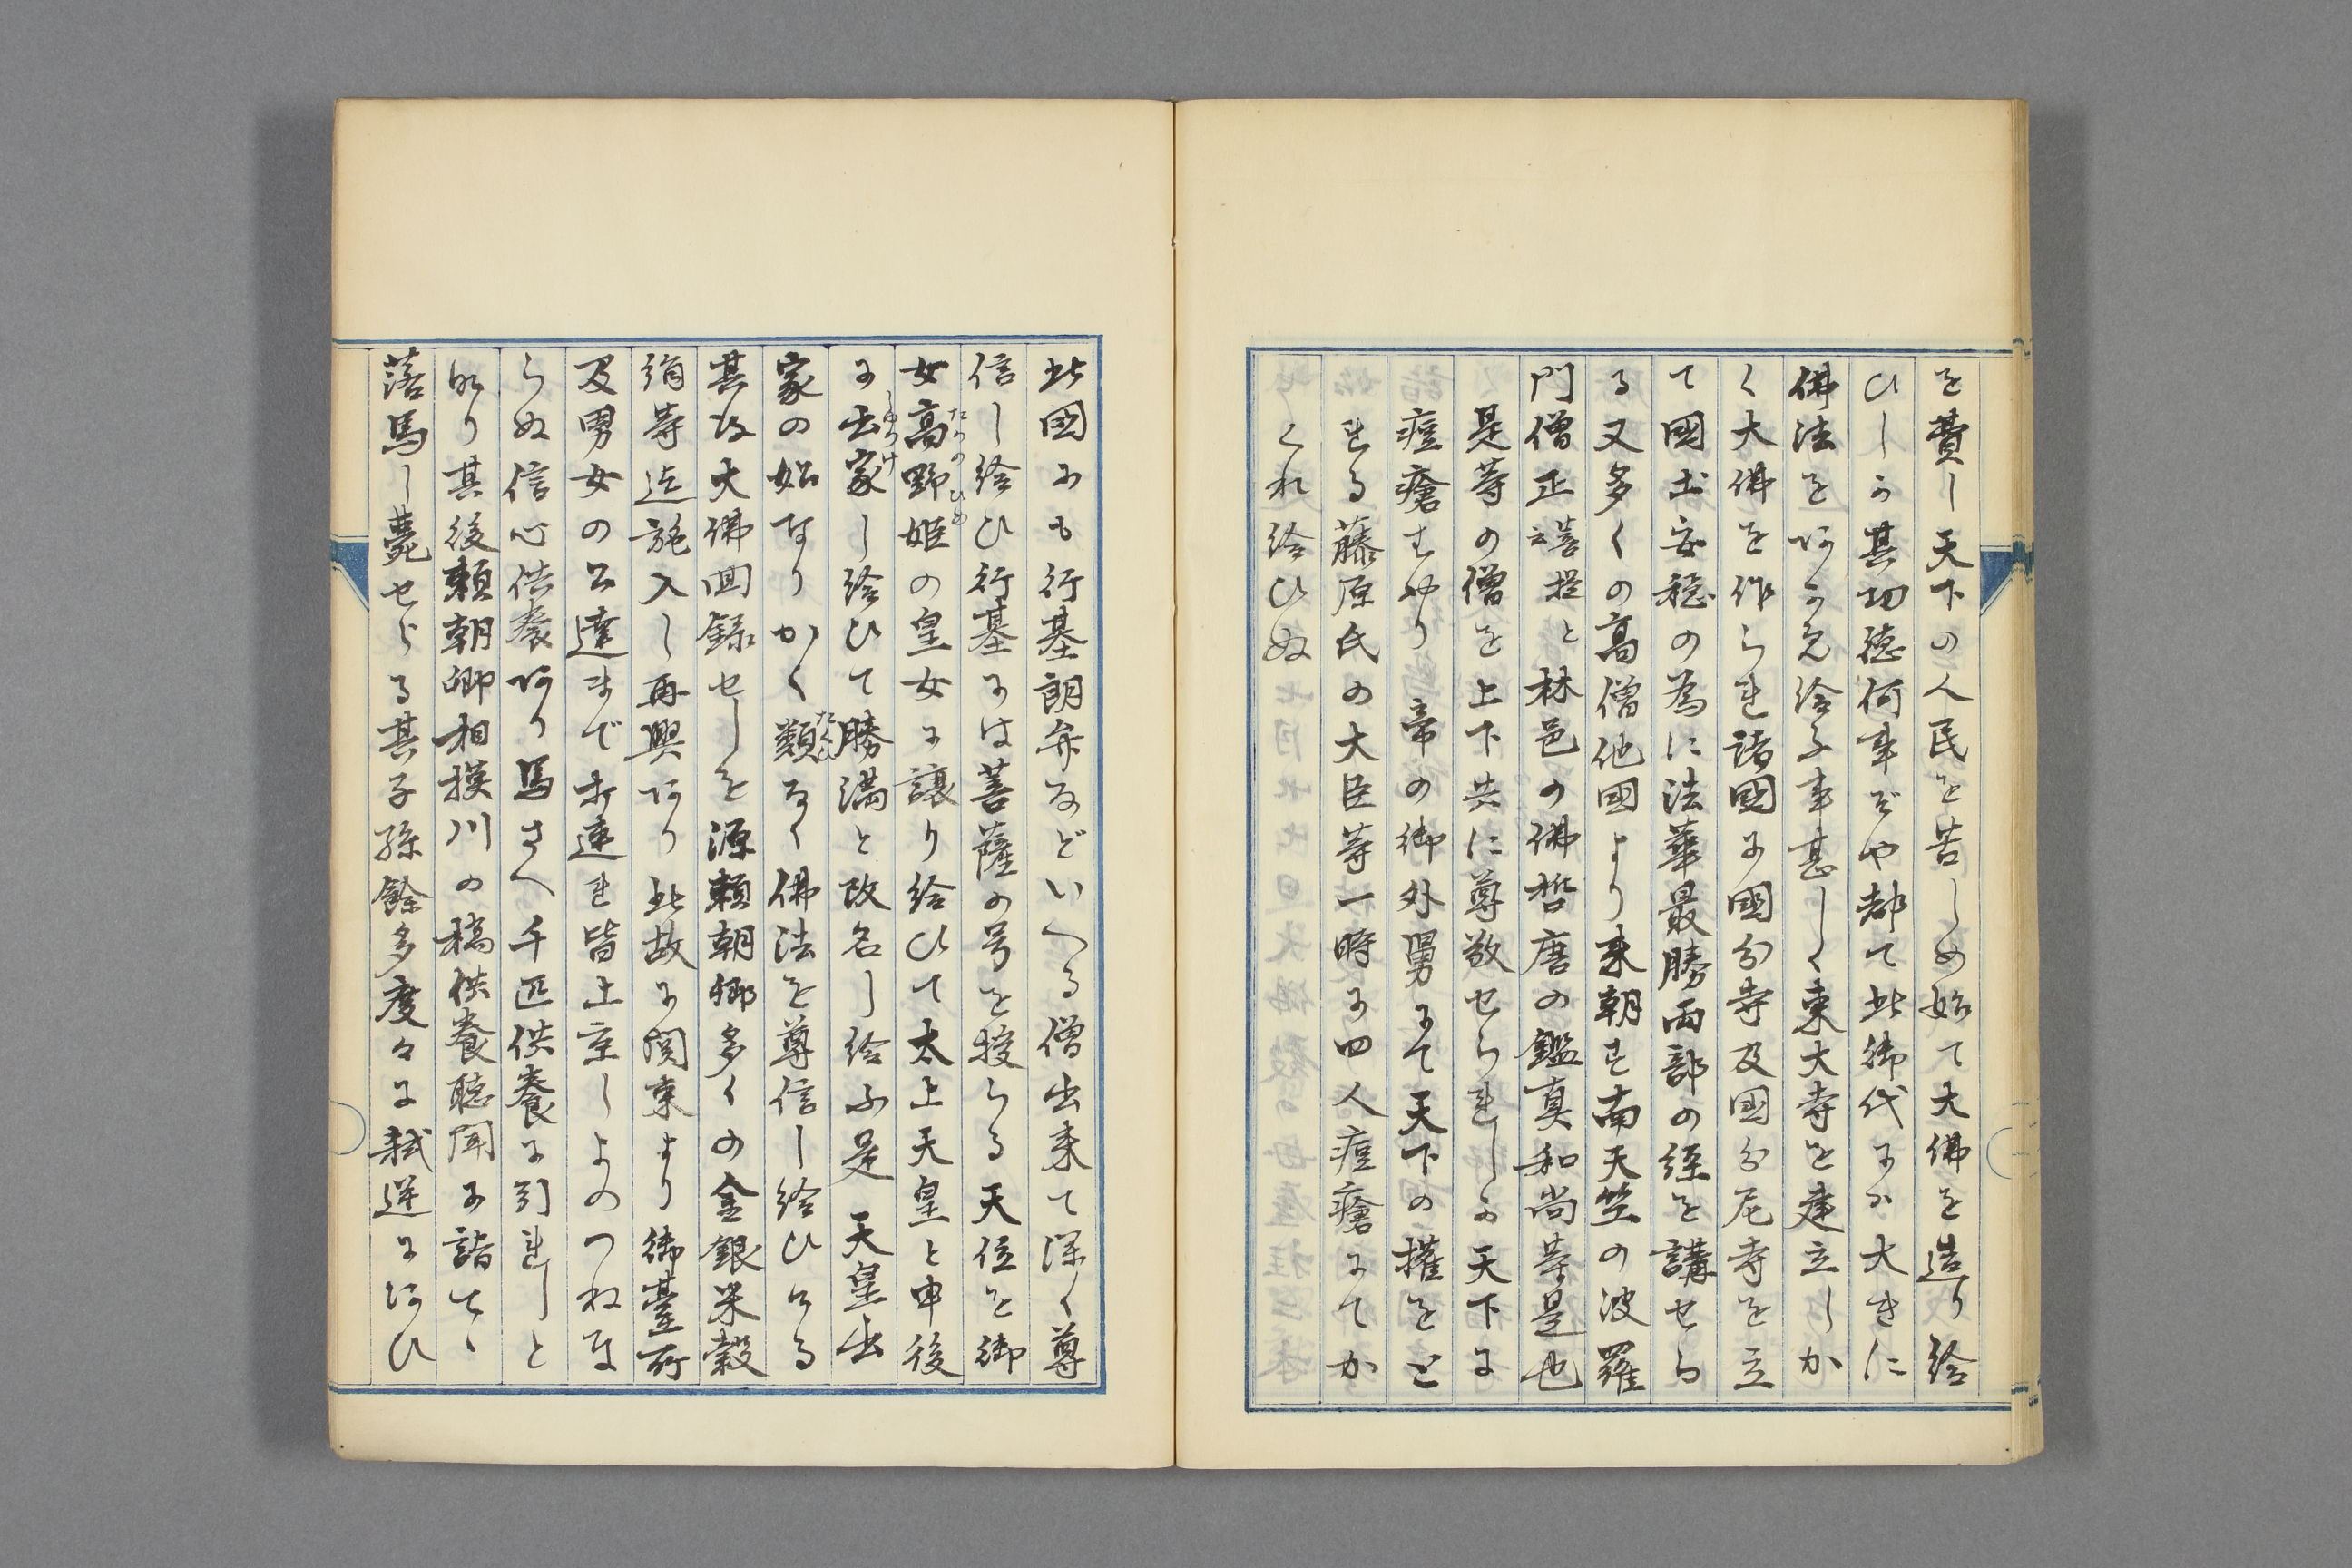 を費し天下の人民を苦しめ始て大佛を造り給
ひしか其功徳何事ぞや都て此御代より大きに
佛法をあかめ給ふ事甚しく東大寺を建立しか
く大佛を作られ諸國に國分寺及國分尼寺を立
て國土安穏の為に法華最勝両部の経を講せら
る又多くの高僧他國より来朝す南天竺の波羅
門僧正菩提と林邑の佛哲唐の鑑真和尚等是也
是等の僧を上下共に尊敬せられしか天下に
痘瘡はやり 帝の御外舅にて天下の権をと
れる藤原氏の大臣等一時に四人痘瘡にてか
くれ給ひぬ
此國にも行基朗弁などいへる僧出来て深く尊
信し給ひ行基には菩薩の号を授らる天位を御
女高野姫の皇女に譲り給ひて太上天皇と申後
たかのひめ
に出家し給ひて勝満と改名し給ふ是 天皇出
しゆつけ
家の始なりかく類なく佛法を尊信し給ひける
たくひ
其故大佛回録せしを源頼朝卿多くの金銀米穀
絹等迄施入し再興あり此故に関東より御臺所
及男女の公達まで打連れ皆上京しよのつねな
らぬ信心供養あり馬さへ千匹供養に引れしと
かり其後頼朝卿相模川の橋供養聴聞に詣て
落馬し薨せらる其子孫餘多度々に弑逆にあひ